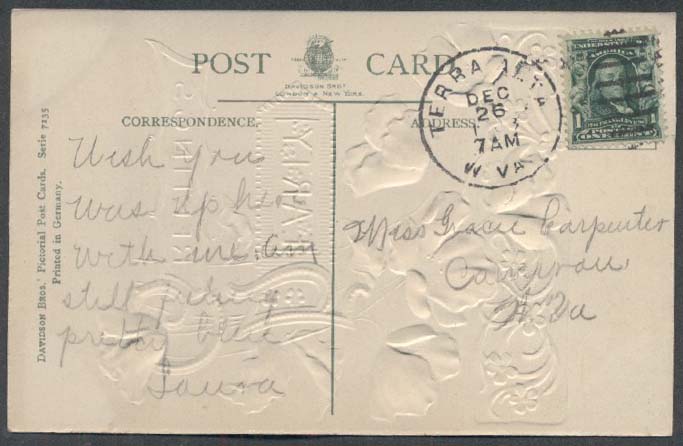 POST CARD
DAVIDSON BROS
LONDON & NEW YORK
CORRESPONDENCE.
ADDRESS
TERRA ALTA
DEC
26
7AM
W VA
1
ONE CENT
Wish you
was up her
with me. Am
still feeling
pretty blue
Laura
Miss Gracie Carpenter
Cameron
W. Va
DAVIDSON BROS.' Pictorial Post Cards. Serie 7135
Printed in Germany.